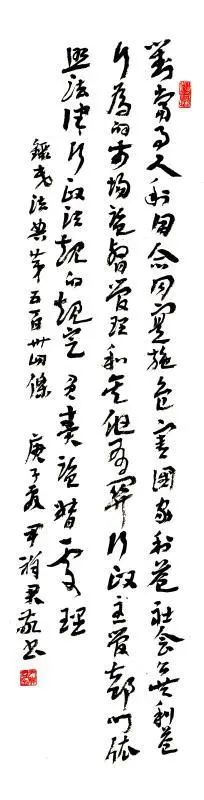 對當事人利用合同實施危害國家利益社会公共利益
行為的市場監督管理和其他有關行政主管部门依
照法律行政法規的規定負責監督處理
錄民法典第五百卅四條 庚子夏 君敬書